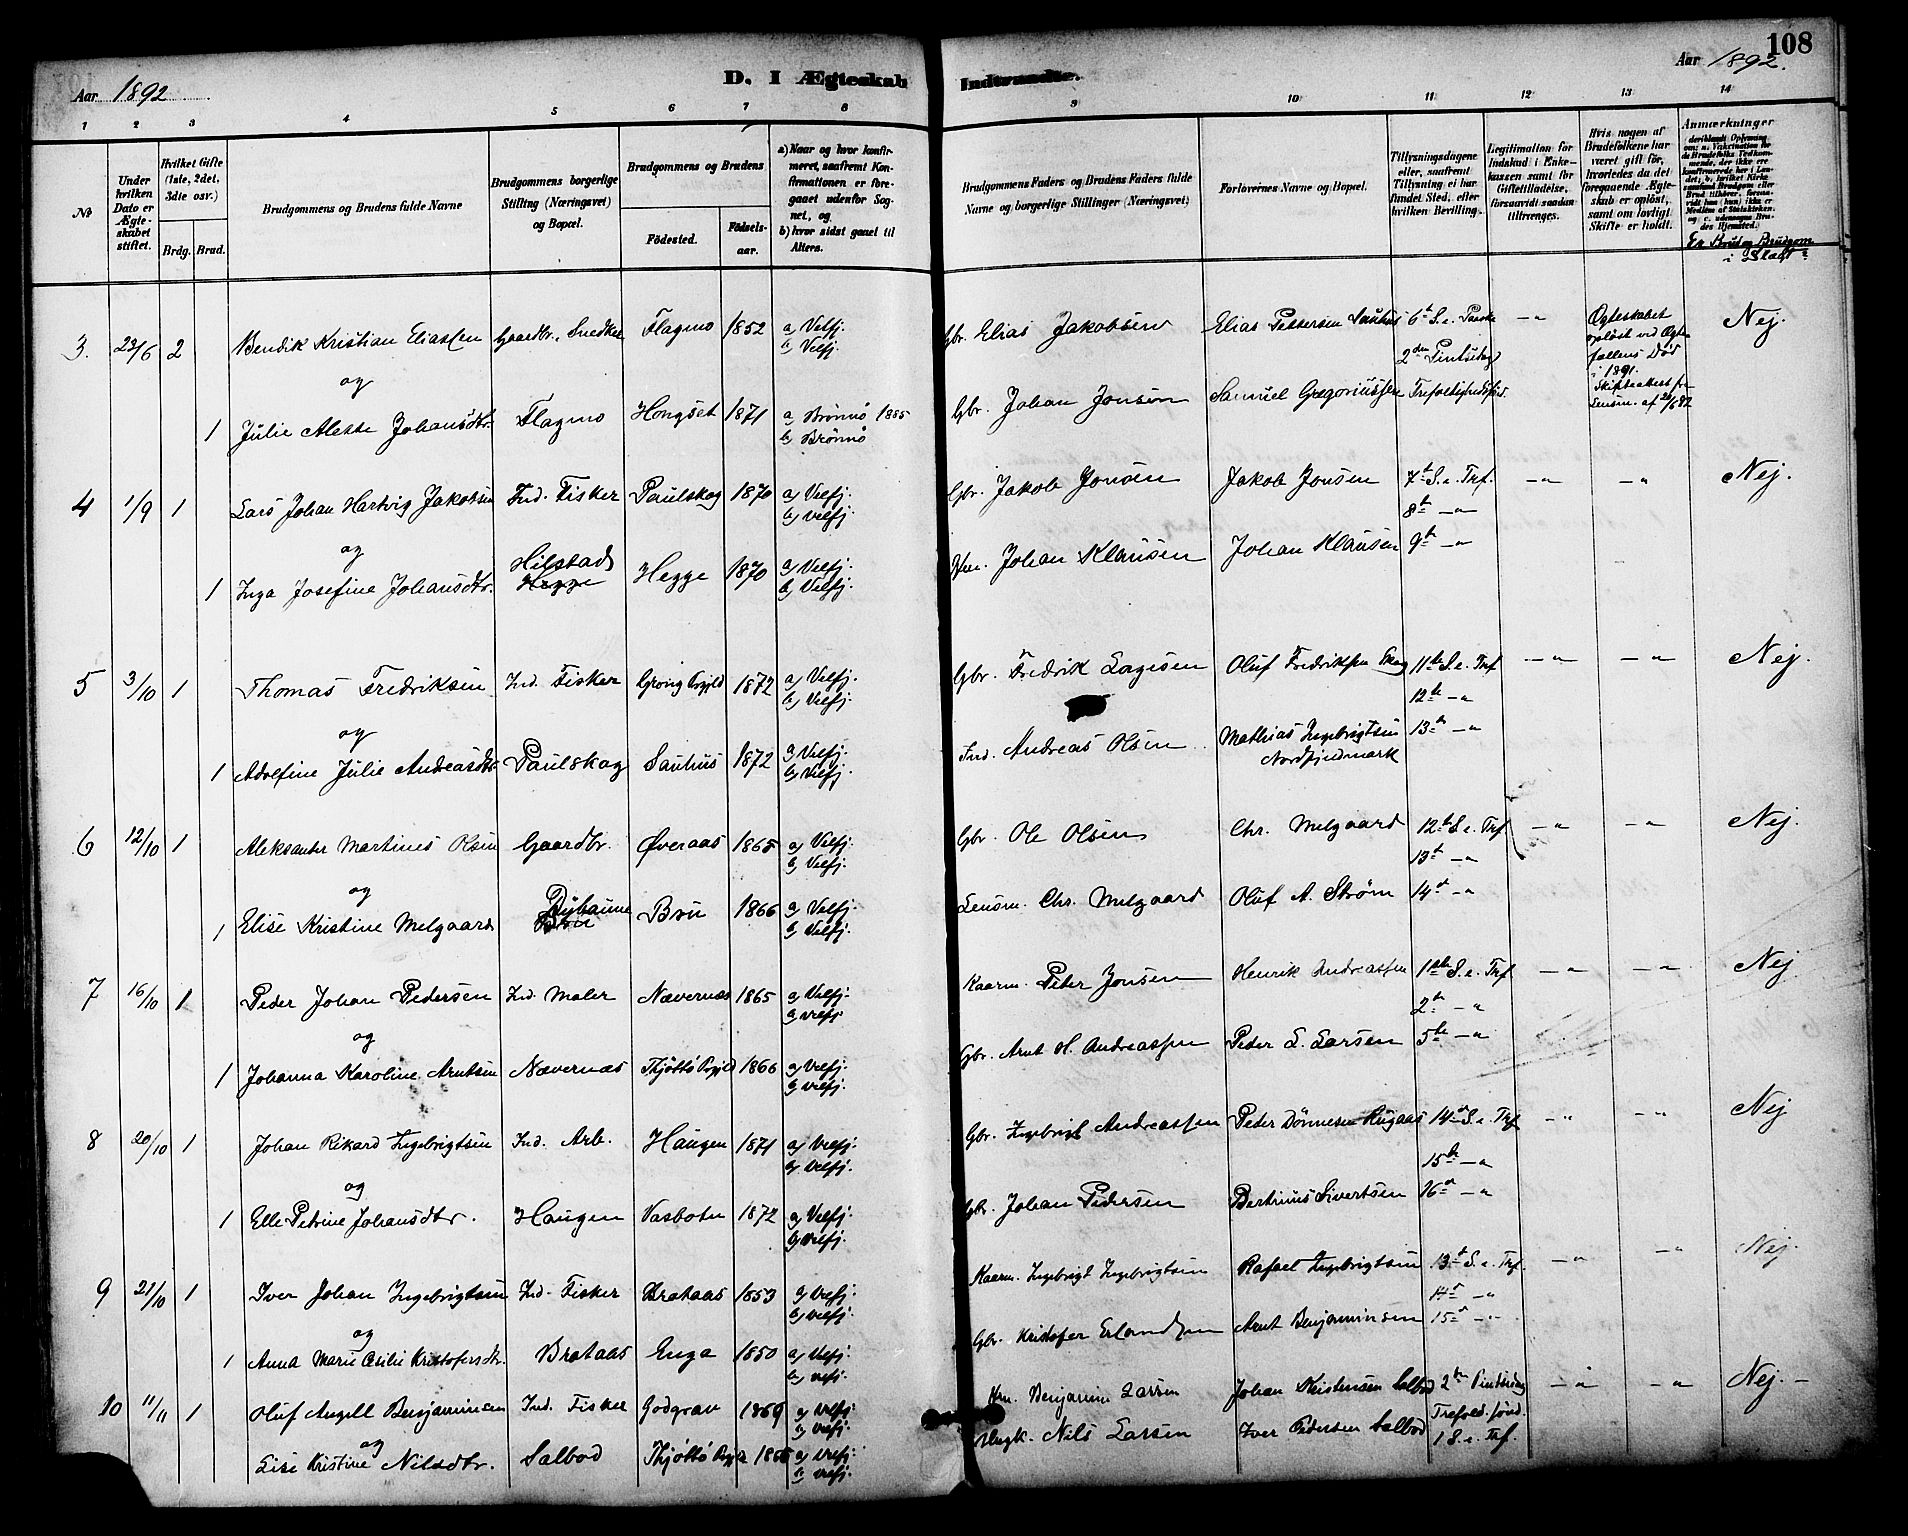 108
Aar 1892
D. I Ægteskab Indtraadte.
Aar 1892.
1 2 3 4 5 6 7 8 9 10 11 12 13 14
№
Under hvilken Dato er Ægteskabet stiftet.
Hvilket Gifte (1ste, 2det, 3die osv.)
Brdg. Brud.
Brudgommens og Brudens fulde Navne
Brudgommens borgerlige Stilling (Næringsvei) og Bopæl.
Brudgommens og Brudens
Födested.
Födselsaar.
a) Naar og hvor konfirmeret, saafremt Konfirmationen er foregaaet udenfor Sognet, og
b) hvor sidst gaaet til Alters.
Brudgommens Faders og Brudens Faders fulde Navne og borgerlige Stillinger (Næringsvei)
Forlovernes Navne og Bopæl.
Tillysningsdagene eller, saafremt Tillysning ei har fundet Sted, efter hvilken Bevilling.
Legitimation for Indskud i Enkekassen samt for Giftetilladelse, forsaavidt saadan tiltrænges.
Hvis nogen af Brudefolkene har været gift för, hvorledes da det foregaaende Ægteskab er oplöst, samt om lovligt Skifte er holdt.
Anmærkninger
Er Brud og Brudgom i Slægt
3. 23/6 2 Bendik Kristian Eliassen Gaardbr. Snedker Flagmo 1852 a) Velfj. Gbr. Elias Jakobsen Elias Pettersen Sauhus 6te S. e. Paaske -"- Ægteskabet Nej.
b) Velfj. 2den Pintsedag opløst ved Ægte
og fællens Død
i 1891.
1 Julie Alette Johansdtr. Flagmo Hongset 1871 a) Brönnö 1885 Gbr. Johan Jonsen Samuel Gregoriussen Trefoldighedsfest.
b) Brönnö
4 1/9 1 Lars Johan Hartvig Jakobsen Ind. Fisker Paulskog 1870 a) Velfj. Gbr. Jakob Jonsen Jakob Jonsen 7de S. e. Trf. -"- -"- Nej.
b) Velfj. 8de -"-
og Hilstad
1 Inga Josefine Johansdtr. Hegge Hegge 1870 a) Velfj. Johan Klausen Johan Klausen 9de -"-
b) Velfj.
5 3/10 1 Thomas Fredriksen Ind. Fisker Grong Prgjld 1872 a) Velfj. Gbr. Fredrik Lagesen Oluf Fredriksen Skog 11te S. e. Trf -"- -"- Nej.
b) Velfj. 12te -"-
og
1 Adolfine Julie Andreasdtr Paulskog Sauhus 1872 a) Velfj. Ind. Andreas Olsen Mathias Ingebrigtsen 13de -"-
b) Velfj. Nordfjendmark
6 12/10 1 Aleksander Martines Olsen Gaardbr. Øveraas 1865 a) Velfj. Gbr. Ole Olsen Chr. Melgaard 12te S. e. Trf -"- -"- Nej.
b) Velfj. 13de -"-
og
1 Elise Kristine Melgaard Bru Bru 1866 a) Velfj. Lensm. Chr. Melgaard Oluf A. Strøm 14de -"-
b) Velfj.
7 16/10 1 Peder Johan Pedersen Ind. Maler Nævernæs 1865 a) Velfj. Kaarm. Peter Jonsen Henrik Andreassen 1ste S. e. Trf -"- -"- Nej
b) Velfj 2de -"-
og
1 Johanna Karoline Arntsen Nævernæs Thjöttö Prgjld 1866 a) Velfj. Gbr. Arnt H. Andreassen Peder L. Larsen 5te -"-
b) Velfj.
8 20/10 1 Johan Rikard Ingebrigtsen Ind. Arb. Haugen 1871 a) Velfj. Gbr. Ingebrigt Andreassen Peder Dönnesen Rugaas 14de S. e. Trf -"- -"- Nej
b) Velfj. 15de -"-
og
1 Elle Petrine Johansdtr. Haugen Vasbotn 1872 a) Velfj. Gbr. Johan Pedersen Bertinus Sivertsen 16de -"-
b) Velfj.
9 21/10 1 Iver Johan Ingebrigtsen Ind. Fisker Brataas 1853 a) Velfj. Kaarm. Ingebrigt Ingebrigtsen Rafael Ingebrigtsen 13de S. e. Trf. -"- -"- Nej.
b) Velfj. 14de -"-
og
1 Anna Marie Cesilie Kristofersdtr. Brataas Enga 1850 a) Velfj. Gbr. Kristofer Erlandsen Arnt Benjaminsen 15de -"-
b) Velfj.
10 11/11 1 Oluf Angell Benjaminsen Ind. Fisker Godgrav 1869 a) Velfj. Benjamin Larsen Johan Kristensen Salbod 2den Pintsedag -"- -"- Nej. -
b) Velfj. Trefold. sönd.
og
Lise Kristine Nilsdtr. Salbod Thjöttö Prgjld a) Velfj. Nils Larsen Iver Pedersen Salbod 1 S. e. Trf.
b) Velfj.